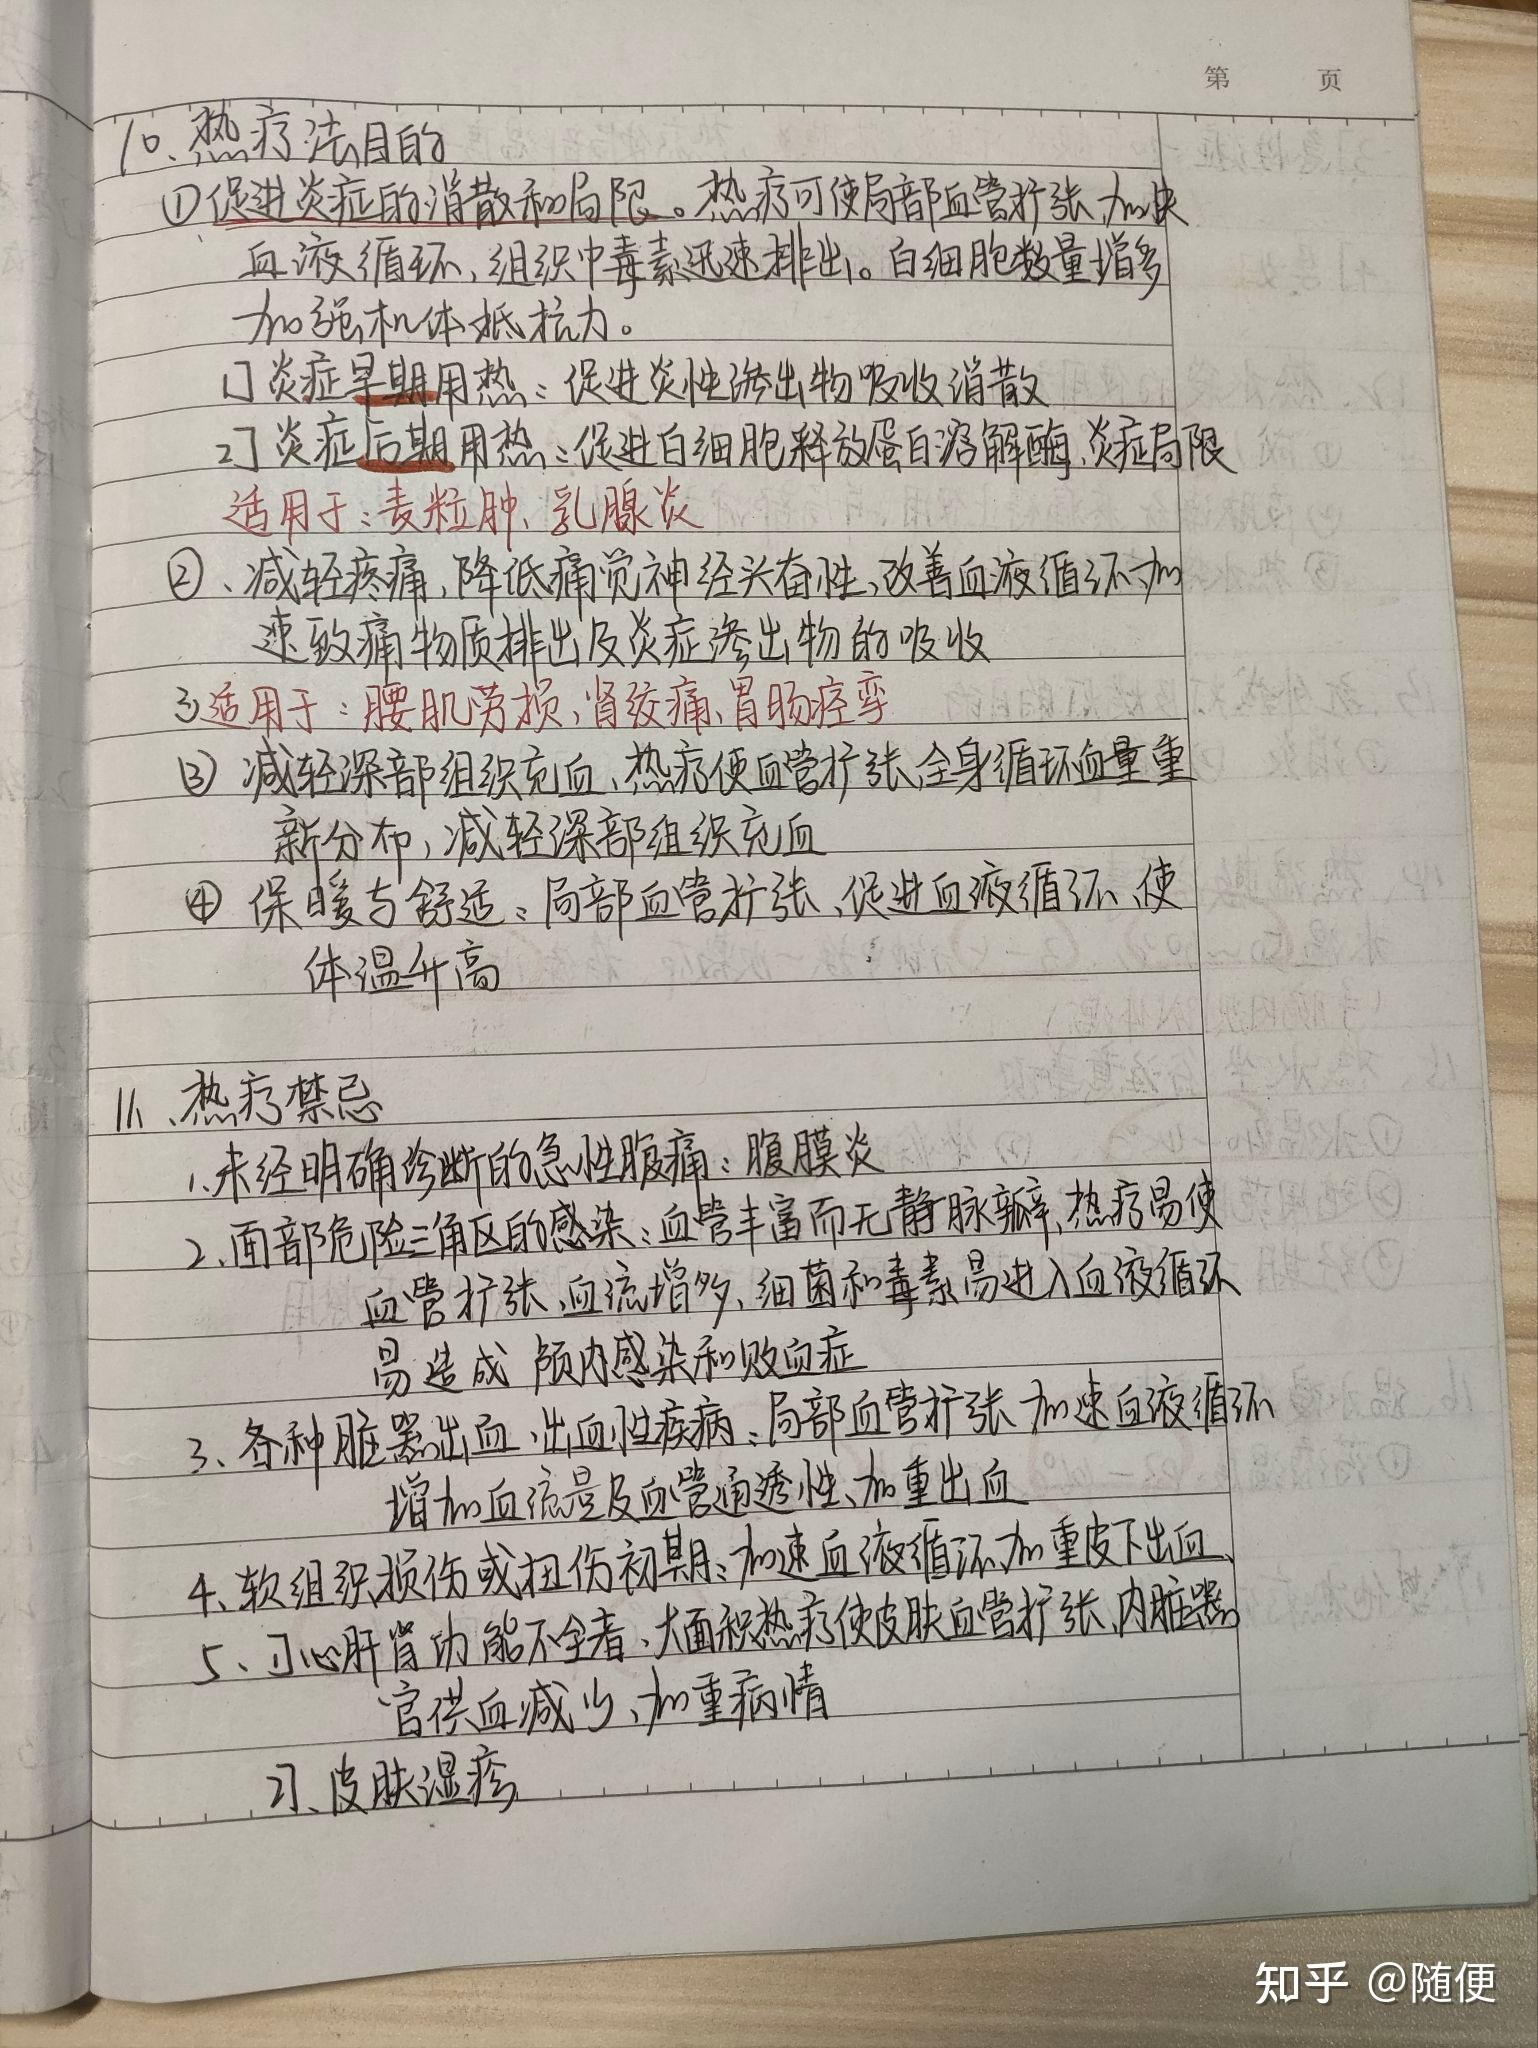 第 页
10、热疗法目的
①促进炎症的消散和局限。热疗可使局部血管扩张,加快
血液循环、组织中毒素迅速排出。白细胞数量增多
加强机体抵抗力。
1]炎症早期用热:促进炎性渗出物吸收消散
2]炎症后期用热:促进白细胞释放蛋白溶解酶、炎症局限
适用于:麦粒肿、乳腺炎
②、减轻疼痛,降低痛觉神经兴奋性、改善血液循环、加
速致痛物质排出及炎症渗出物的吸收
适用于:腰肌劳损、肾绞痛、胃肠痉挛
③减轻深部组织充血、热疗使血管扩张、全身循环血量重
新分布,减轻深部组织充血
④保暖与舒适:局部血管扩张、促进血液循环、使
体温升高
11、热疗禁忌
1.未经明确诊断的急性腹痛:腹膜炎
2、面部危险三角区的感染:血管丰富而无静脉瓣、热疗易使
血管扩张、血流增多、细菌和毒素易进入血液循环
易造成颅内感染和败血症
3、各种脏器出血、出血性疾病:局部血管扩张 加速血液循环
增加血流量及血管通透性、加重出血
4、软组织损伤或扭伤初期:加速血液循环、加重皮下出血、
5、1]心肝肾功能不全者、大面积热疗使皮肤血管扩张、内脏器
官供血减少、加重病情
2]、皮肤湿疹
知乎 @随便